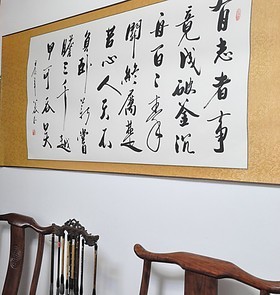 有志者事
竟成破釜沉
舟百二秦
關終屬楚
苦心人天不
負卧薪嘗
膽三千越
甲可吞吳